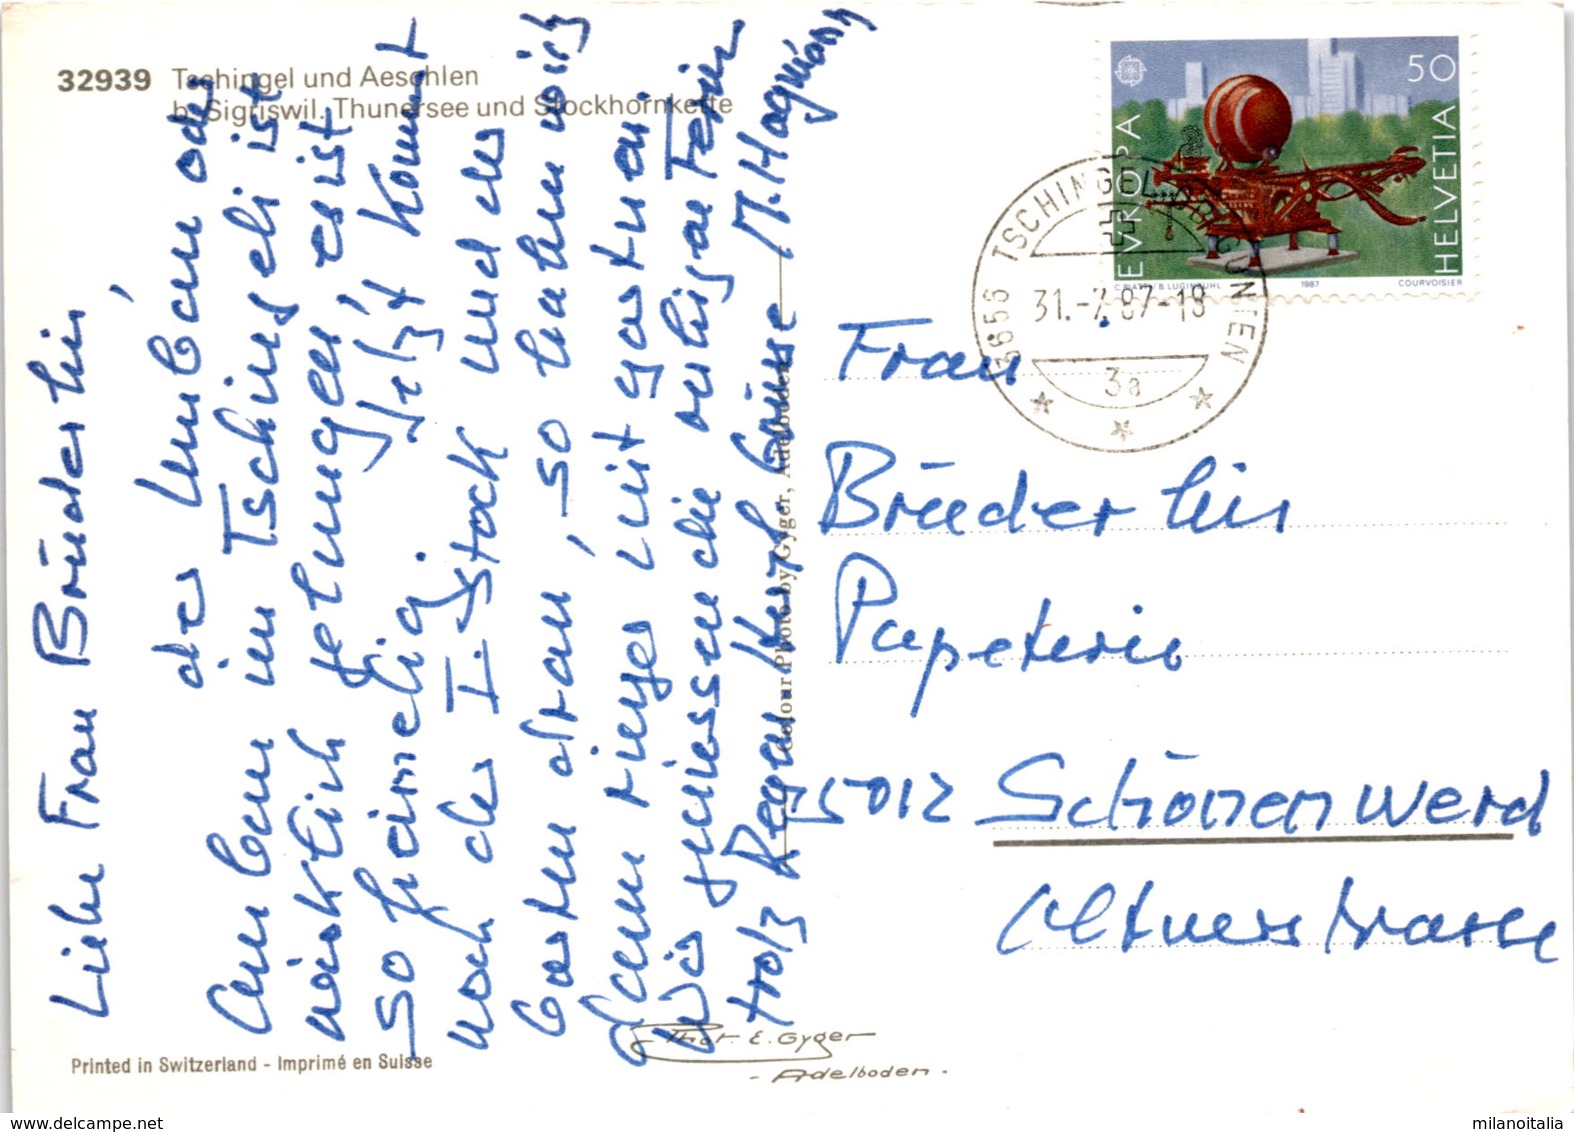 32939 Tschingel und Aeschlen
b. Sigriswil. Thunersee und Stockhornkette
Liebe Frau Brüderlin,
der Umbau oder
Anbau im Tschingeli ist
wirklich gelungen, es ist
so heimelig. Jetzt kommt
noch der I. Stock und der
Garten dran, so haben wir
dann ringer mit gärtnern.
Wir geniessen die ruhigen Ferien
trotz Regen. Herzl. Grüsse M. Hagmann
Colour Photo by Gyger, Adelboden
Printed in Switzerland - Imprimé en Suisse
Phot. E. Gyger
- Adelboden -
50
EUROPA
HELVETIA
C. PIATTI / B. LUGINBÜHL
1987
COURVOISIER
3655 TSCHINGEL OB GUNTEN
31.-7.87-18
3a
Frau
Brüederlin
Papeterie
5012 Schönenwerd
Oltnerstrasse
milanoitalia